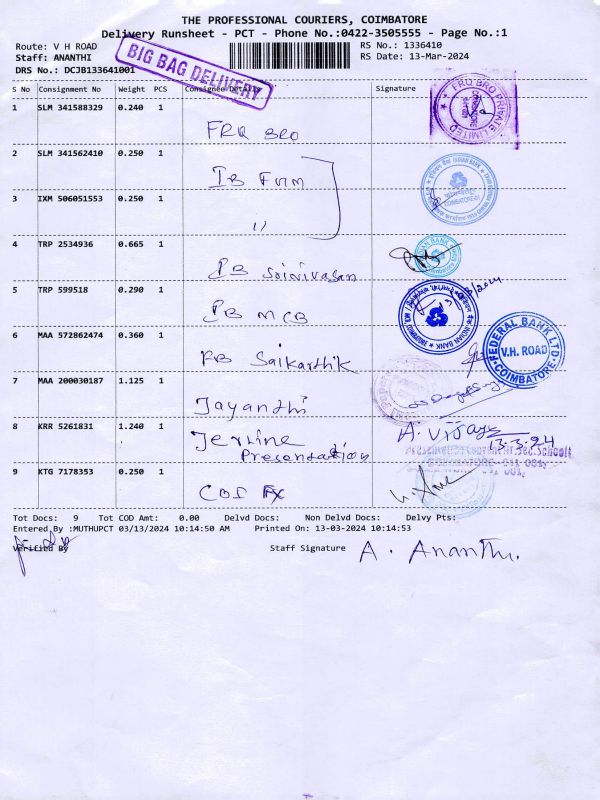 THE PROFESSIONAL COURIERS, COIMBATORE
Delivery Runsheet - PCT - Phone No.:0422-3505555 - Page No.:1
Route: V H ROAD
RS No.: 1336410
Staff: ANANTHI
RS Date: 13-Mar-2024
DRS No.: DCJB133641001
BIG BAG DELIVERY
S No Consignment No Weight PCS Consignee Details Signature
1 SLM 341588329 0.240 1
FRQ BRO
FRQ BRO PRIVATE LIMITED
2 SLM 341562410 0.250 1
IB FMM
INDIAN BANK
3 IXM 506051553 0.250 1
"
4 TRP 2534936 0.665 1
IB Srinivasan
INDIAN BANK
5 TRP 599518 0.290 1
IB MCB
INDIAN BANK
6 MAA 572862474 0.360 1
RB Saikarthik
FEDERAL BANK LTD.
V.H. ROAD
COIMBATORE
7 MAA 200030187 1.125 1
Jayanthi
8 KRR 5261831 1.240 1
Jerline
Presentation
A. Vijaya
13.3.24
COIMBATORE-641 001.
9 KTG 7178353 0.250 1
Tot Docs: 9 Tot COD Amt: 0.00 Delvd Docs: Non Delvd Docs: Delvy Pts:
Entered By :MUTHUPCT 03/13/2024 10:14:50 AM Printed On: 13-03-2024 10:14:53
Verified By
Staff Signature A. Ananthi.